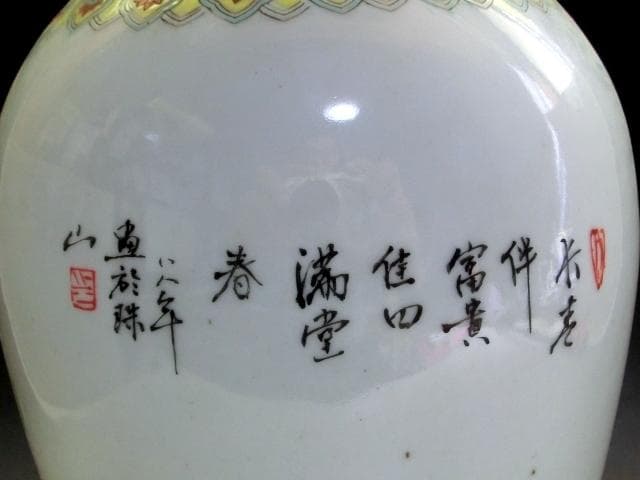 长寿
伴
富貴
佳四
滿堂
春
八八年
畫於珠
山